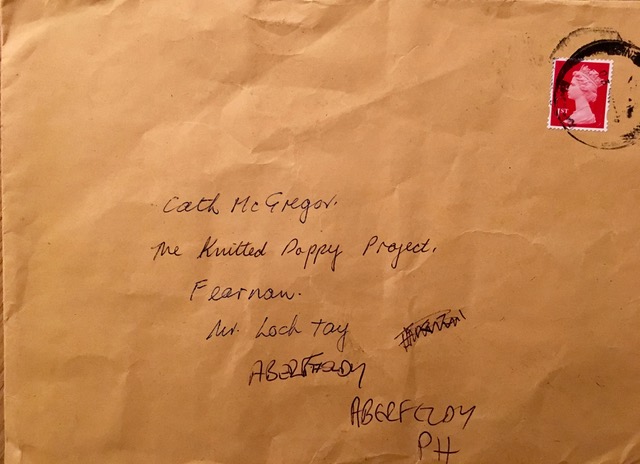 1ST
Cath McGregor.
The Knitted Poppy Project,
Fearnan.
Nr. Loch Tay
ABERFELDY
ABERFELDY
PH